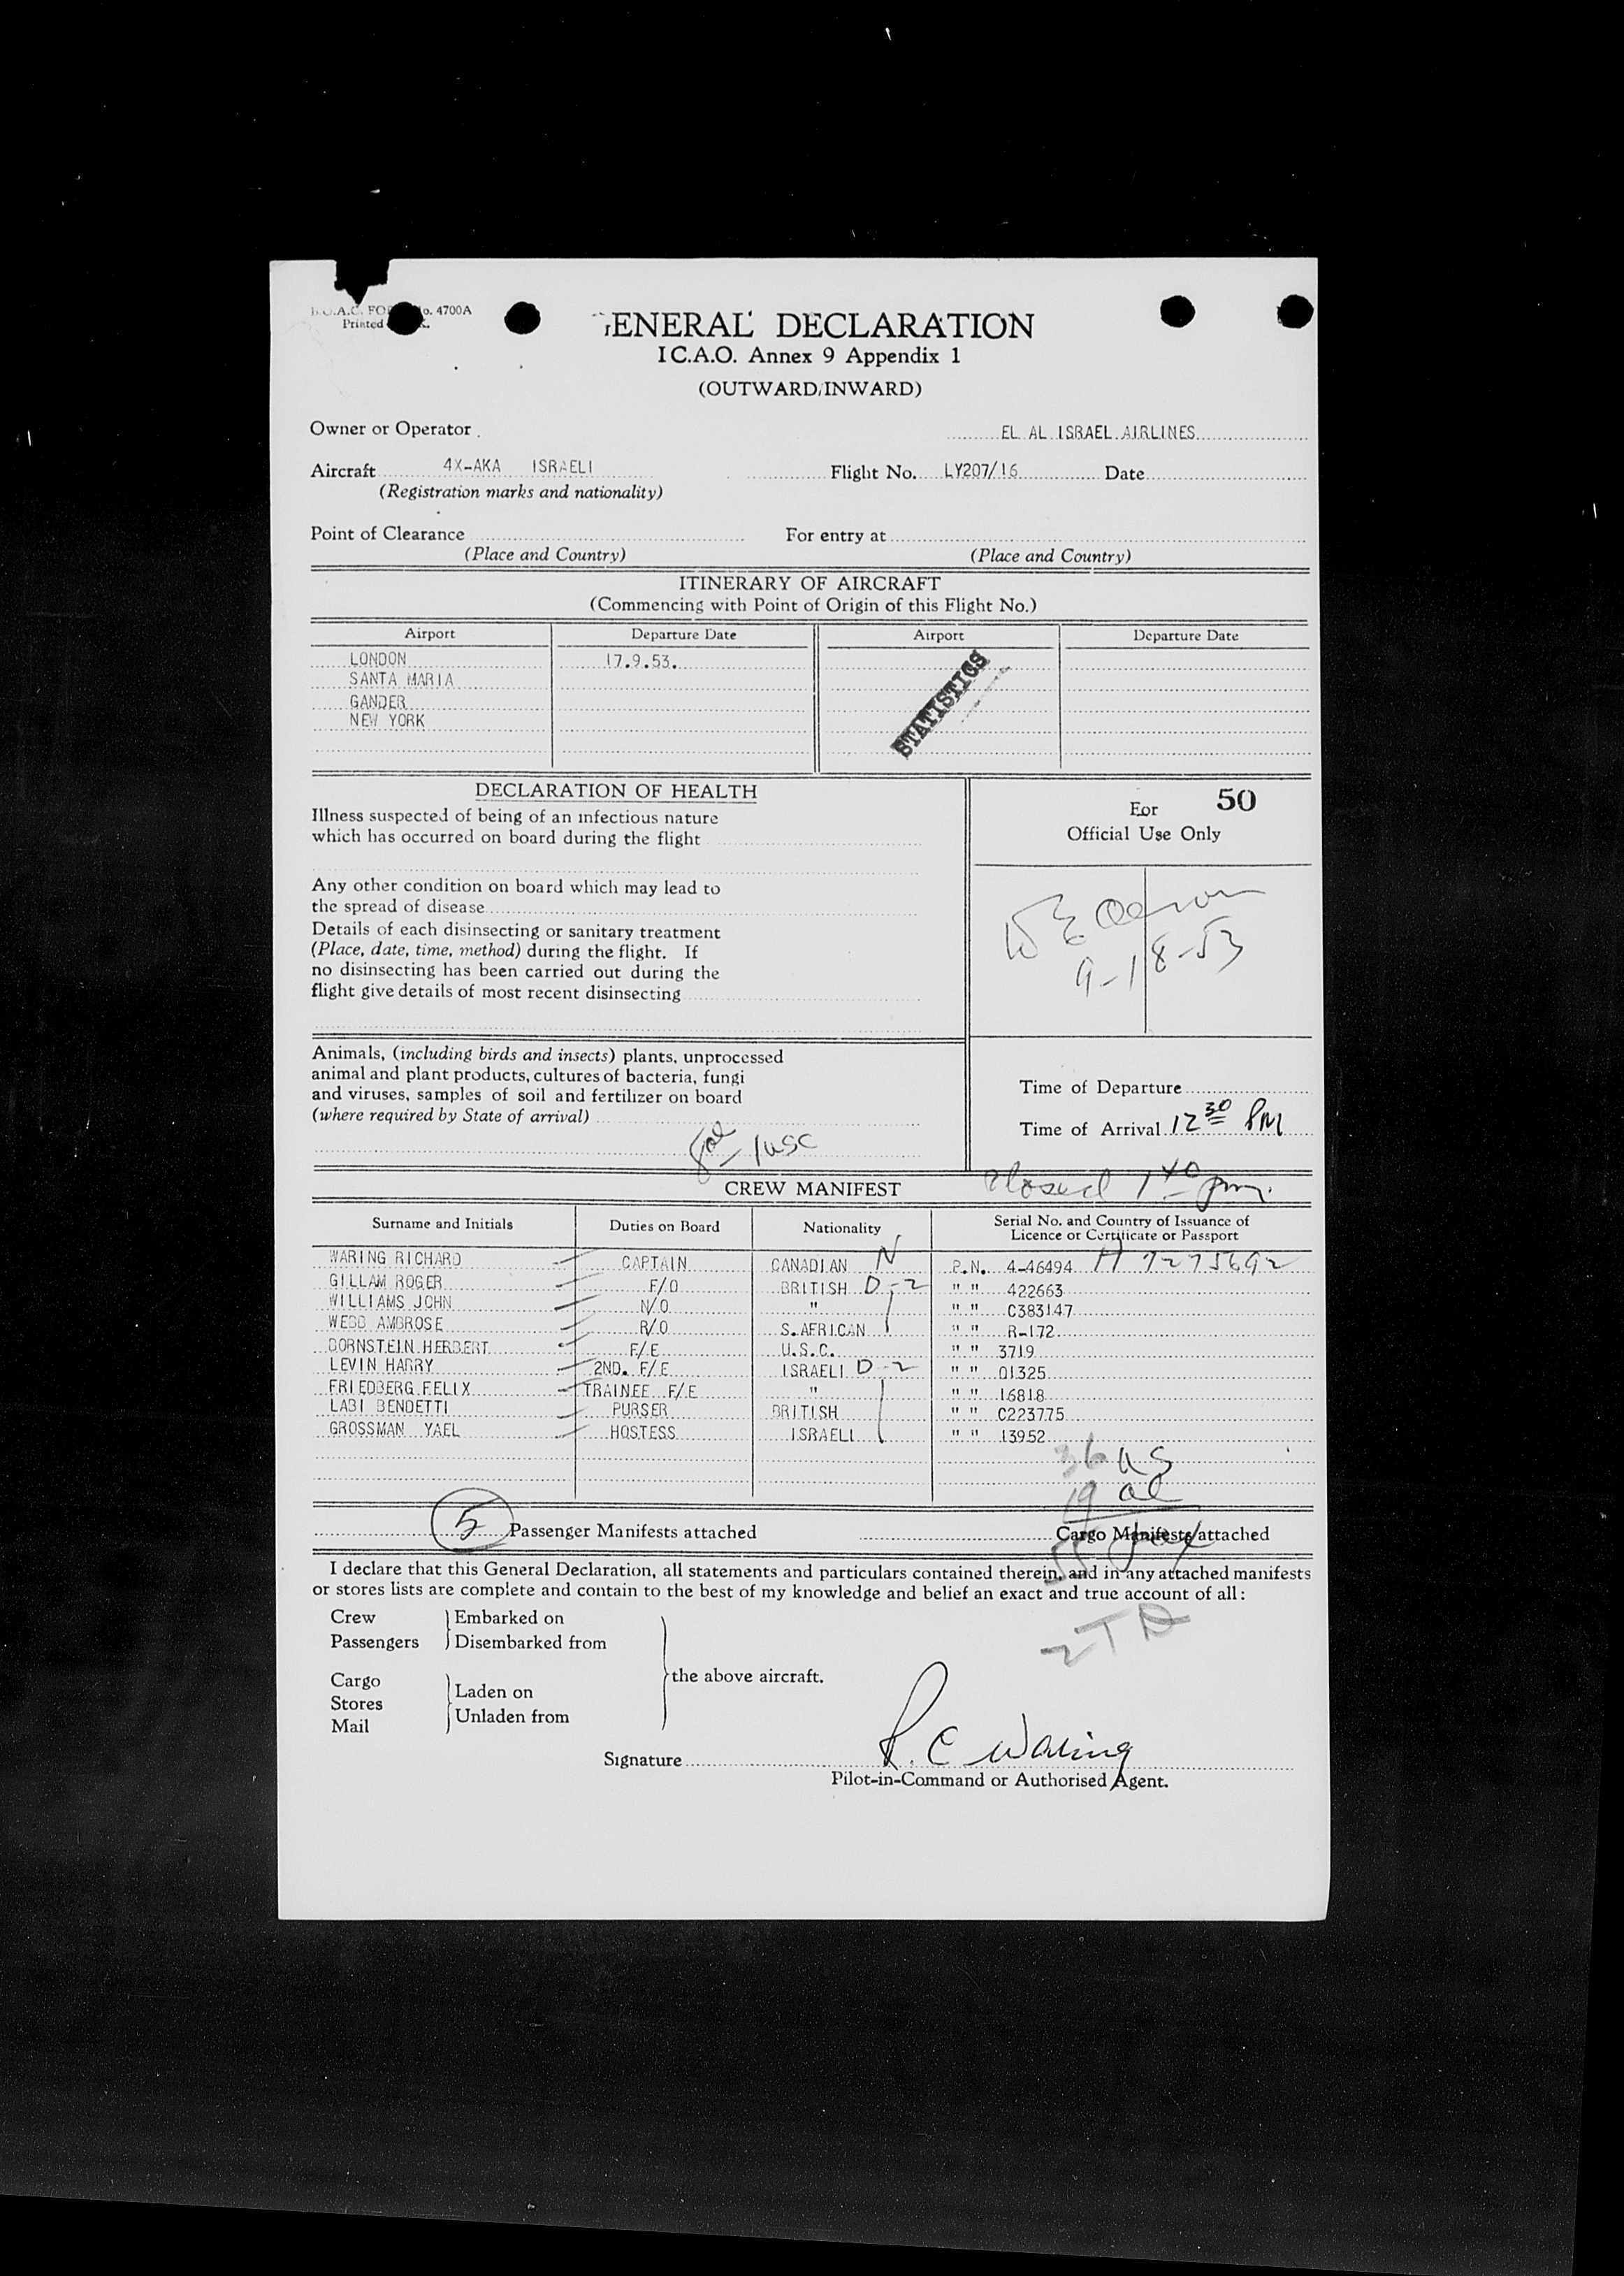 No. 4700A
Printed
GENERAL DECLARATION
I C.A.O. Annex 9 Appendix 1
(OUTWARD/INWARD)
Owner or Operator EL AL ISRAEL AIRLINES
Aircraft 4X-AKA ISRAELI Flight No. LY207/16 Date
(Registration marks and nationality)
Point of Clearance For entry at
(Place and Country) (Place and Country)
ITINERARY OF AIRCRAFT
(Commencing with Point of Origin of this Flight No.)
Airport Departure Date Airport Departure Date
LONDON 17.9.53.
SANTA MARIA
GANDER
NEW YORK
STATISTICS
DECLARATION OF HEALTH
Illness suspected of being of an infectious nature
which has occurred on board during the flight
Any other condition on board which may lead to
the spread of disease
Details of each disinsecting or sanitary treatment
(Place, date, time, method) during the flight. If
no disinsecting has been carried out during the
flight give details of most recent disinsecting
For 50
Official Use Only
9-18-53
Animals, (including birds and insects) plants, unprocessed
animal and plant products, cultures of bacteria, fungi
and viruses, samples of soil and fertilizer on board
(where required by State of arrival)
8al - 1usc
Time of Departure
Time of Arrival 12 30 PM
CREW MANIFEST Closed 1 40 pm.
Surname and Initials Duties on Board Nationality Serial No. and Country of Issuance of
Licence or Certificate or Passport
WARING RICHARD CAPTAIN CANADIAN N P.N. 4-46494 H 7275692
GILLAM ROGER F/O BRITISH D-2 " " 422663
WILLIAMS JOHN N/O " " " C383147
WEBB AMBROSE R/O S.AFRICAN " " R-172
BORNSTEIN HERBERT F/E U.S.C. " " 3719
LEVIN HARRY 2ND. F/E ISRAELI D-2 " " 01325
FRIEDBERG FELIX TRAINEE F/E " " " 16818
LABI BENDETTI PURSER BRITISH " " C223775
GROSSMAN YAEL HOSTESS ISRAELI " " 13952
36 US
19 al
5 Passenger Manifests attached Cargo Manifests attached
55
I declare that this General Declaration, all statements and particulars contained therein, and in any attached manifests
or stores lists are complete and contain to the best of my knowledge and belief an exact and true account of all:
Crew Embarked on
Passengers Disembarked from
the above aircraft.
Cargo
Stores Laden on
Mail Unladen from
2 TD
Signature R. C Waring
Pilot-in-Command or Authorised Agent.